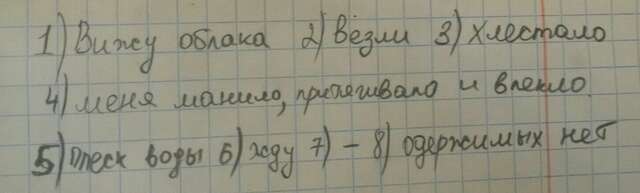 1) Вижу облака 2) Везли 3) Хлестало
4) меня манило, притягивало и влекло.
5) Плеск воды 6) жду 7) - 8) одержимых нет